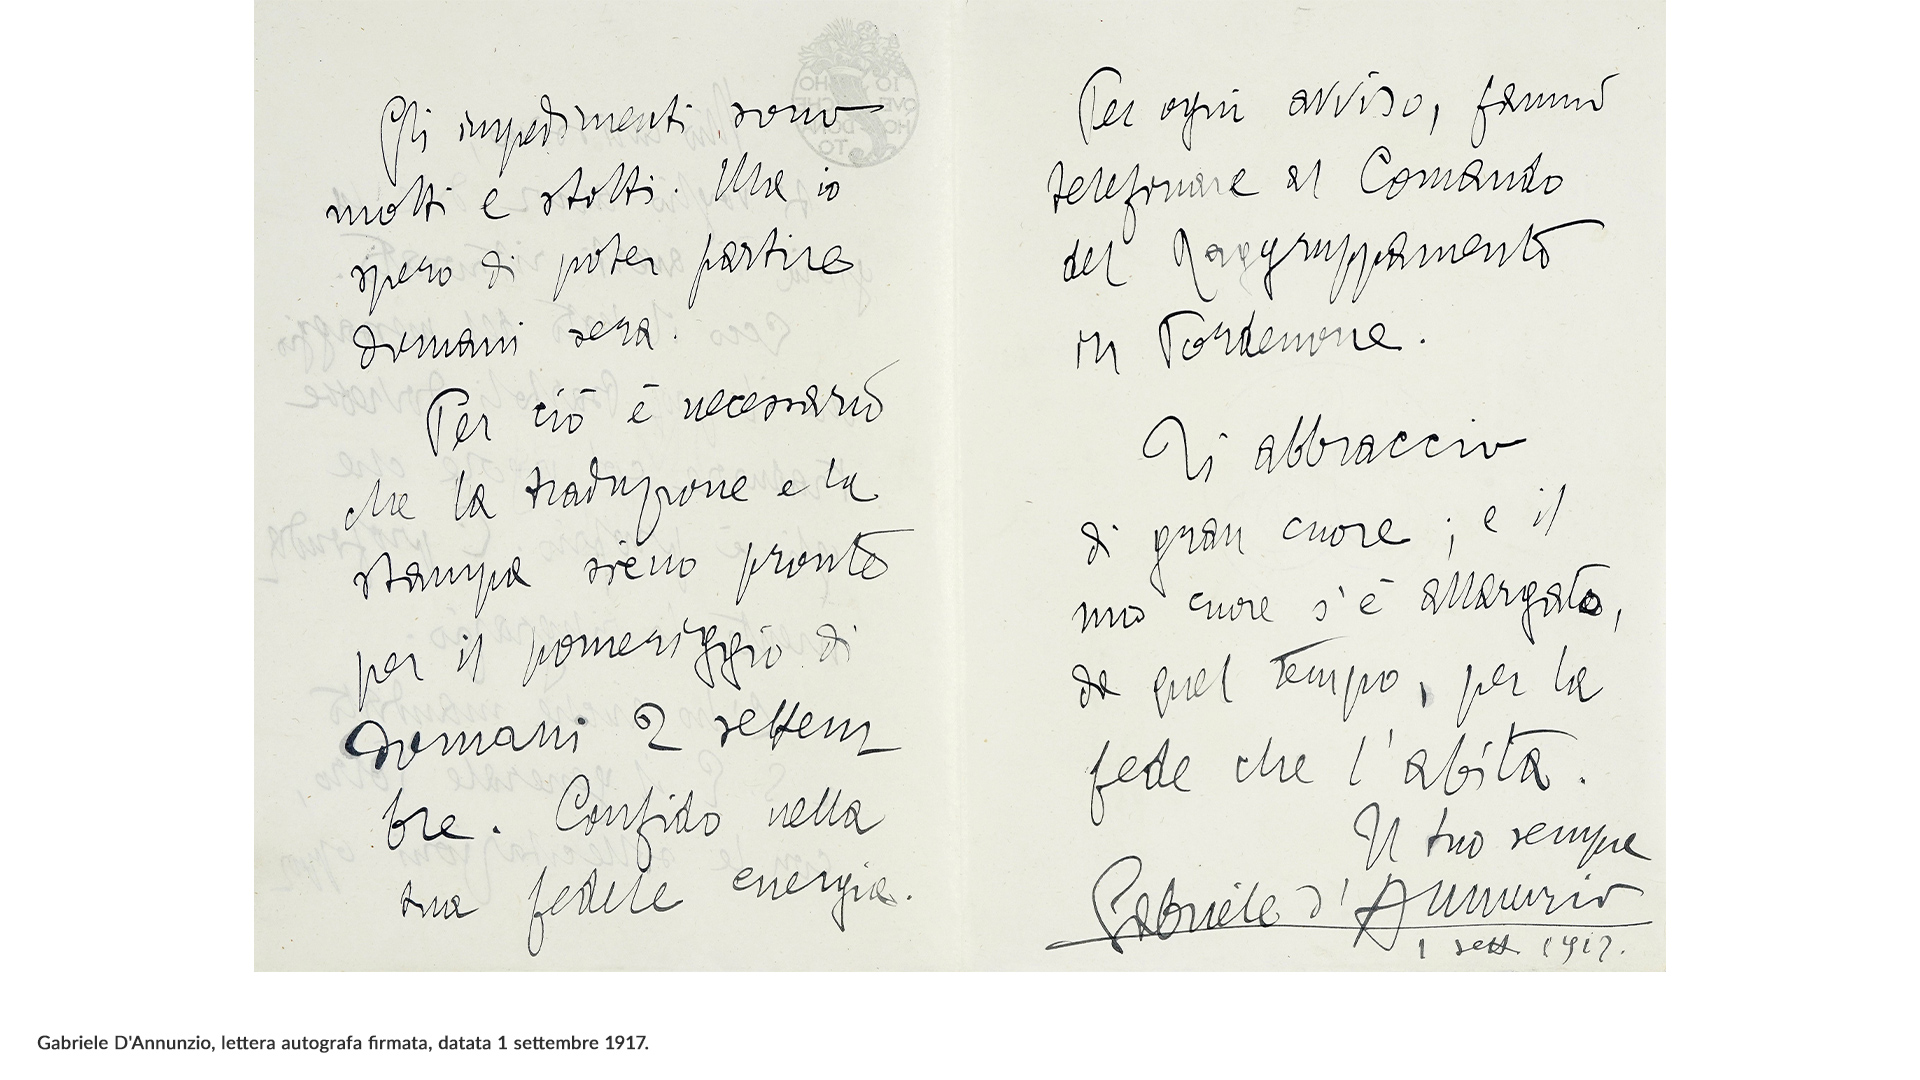 Gli impedimenti sono
molti e stolti. Ma io
spero di poter partire
domani sera.
Per ciò è necessario
che la traduzione e la
stampa sieno pronte
per il pomeriggio di
domani 2 settem
bre. Confido nella
tua fedele energia.
Per ogni avviso, fammi
telefonare al Comando
del Raggruppamento
in Pordenone.
Ti abbraccio
di gran cuore; e il
mio cuore s'è allargato,
da quel tempo, per la
fede che l'abita.
Il tuo sempre
Gabriele d'Annunzio
1 sett. 1917.
IO HO
QUEL CHE
HO DONA
TO
Gabriele D'Annunzio, lettera autografa firmata, datata 1 settembre 1917.